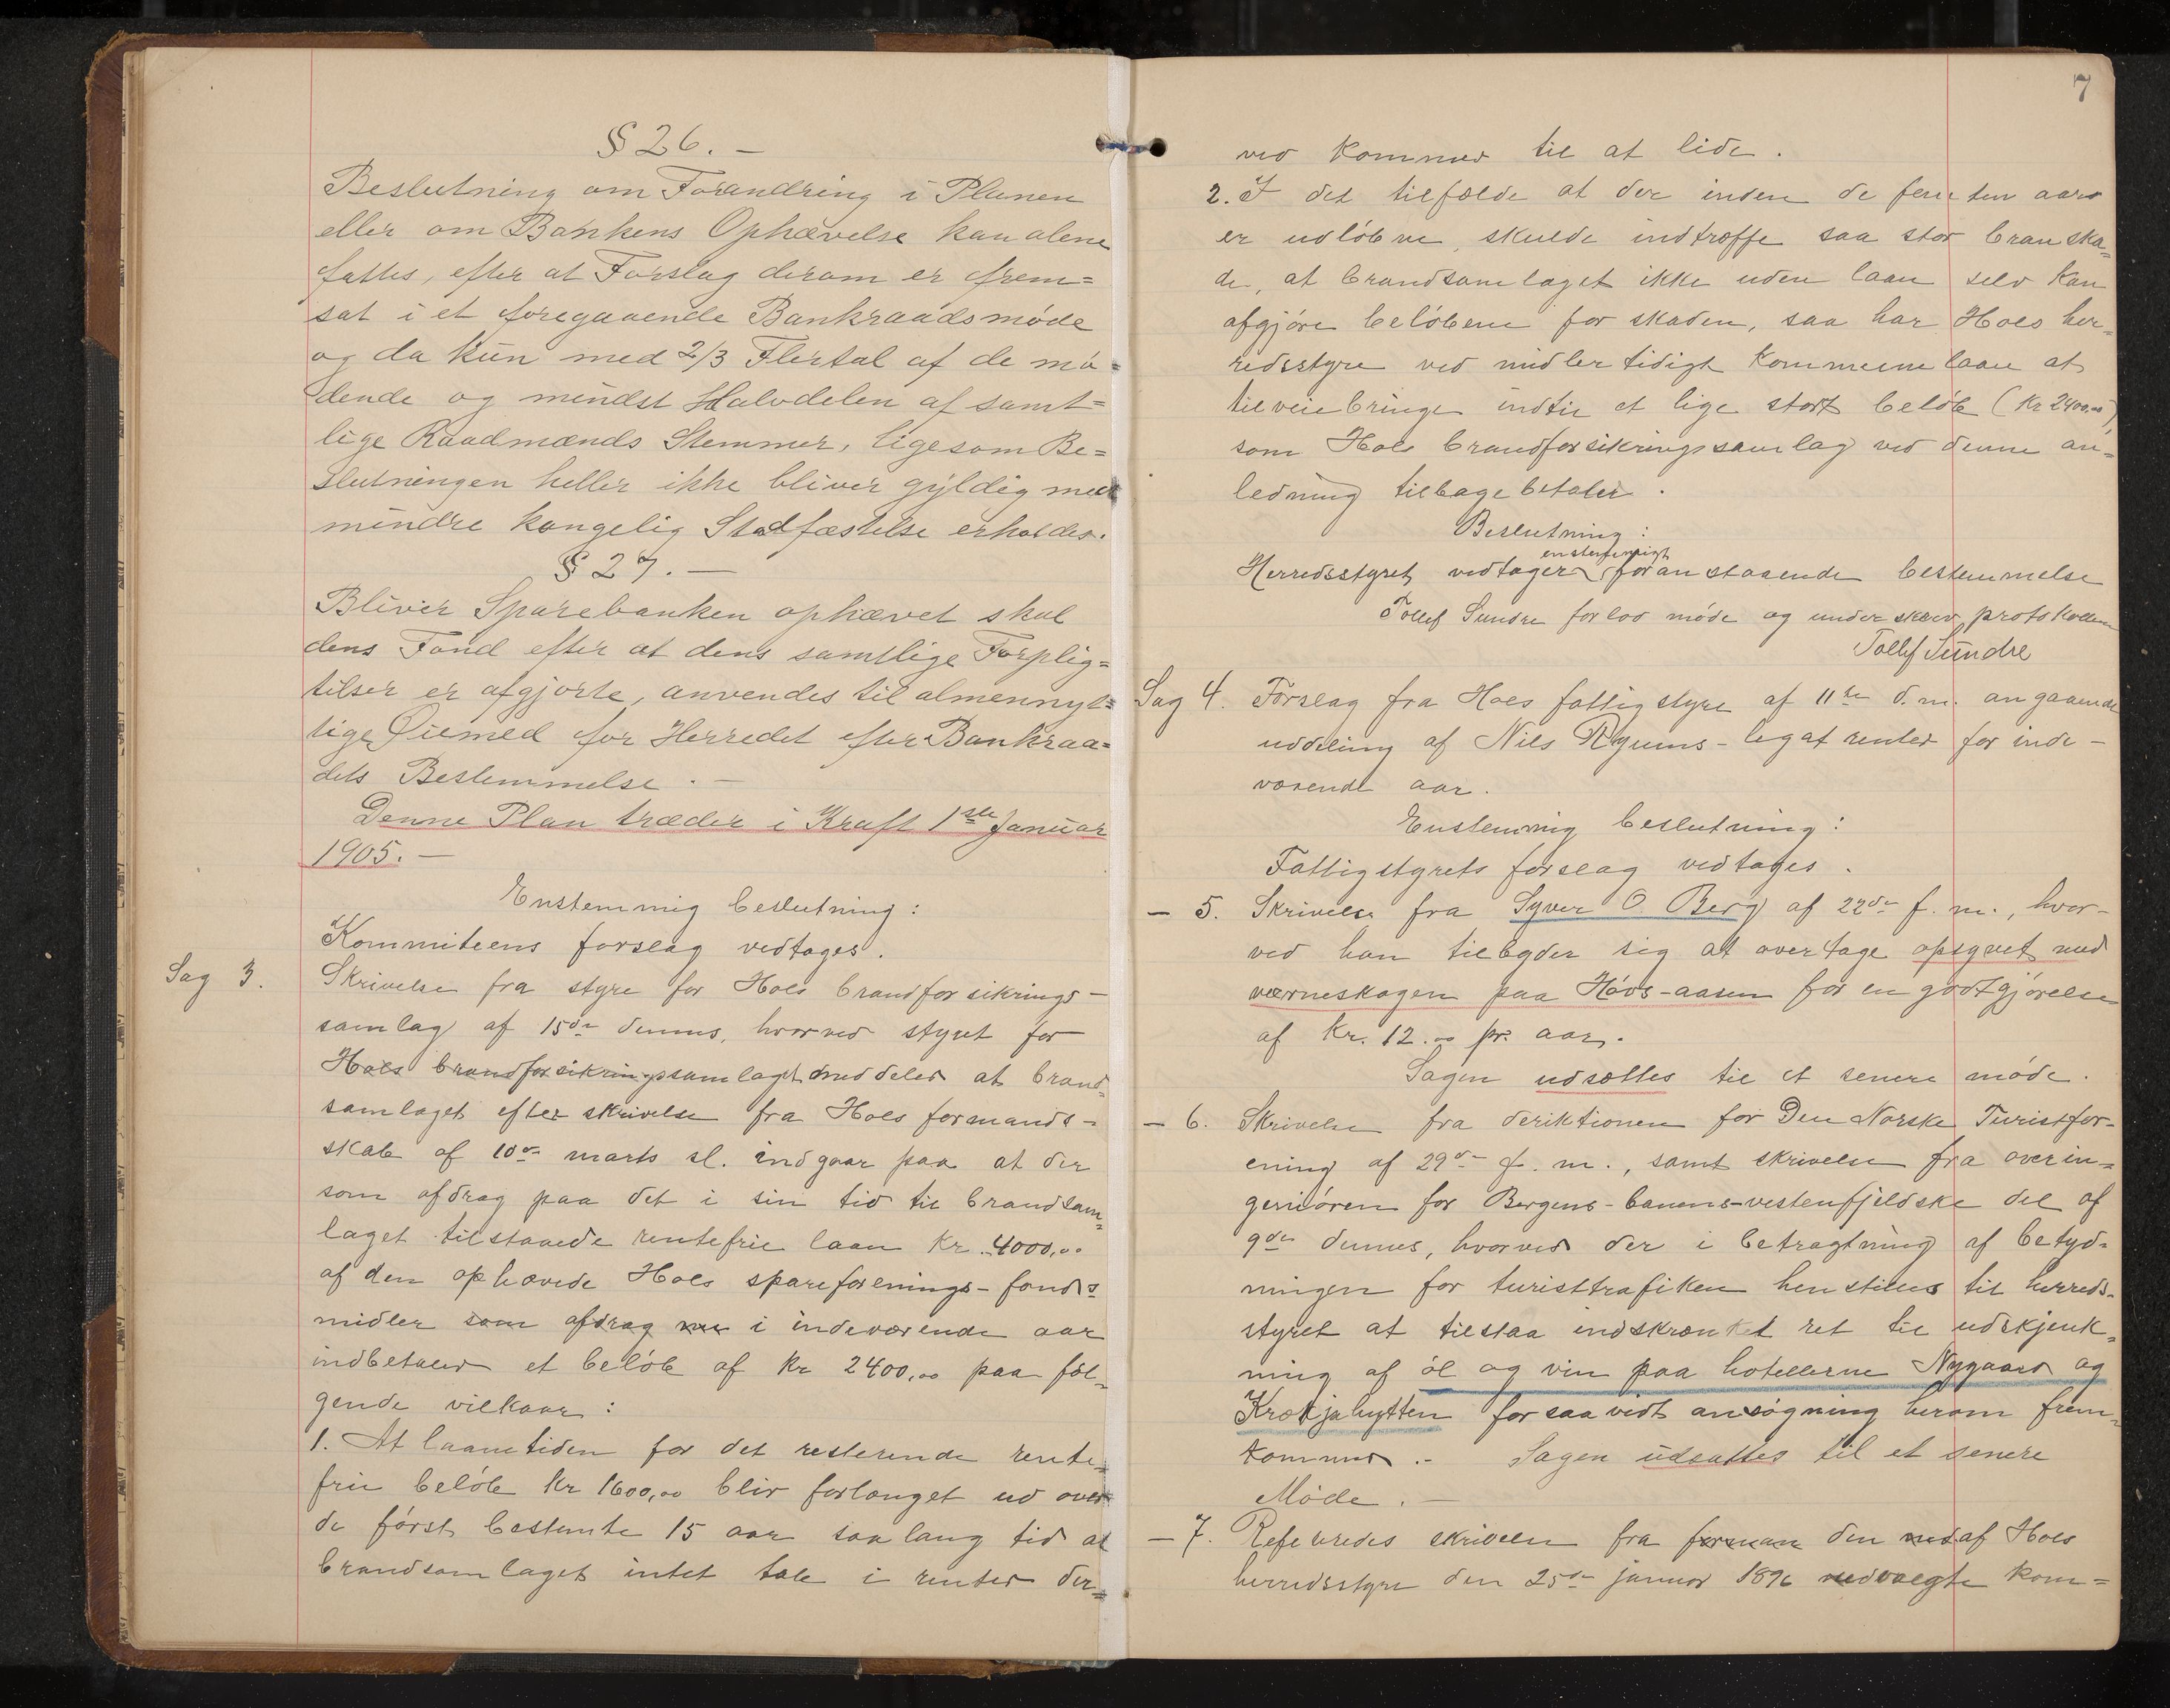 § 26. –
Beslutning om Forandring i Planen
eller om Bankens Ophævelse kan alene
fattes, efter at Forslag derom er frem=
sat i et foregaaende Bankraadsmöde
og da kün med 2/3 Flertal af de mö=
dende og mindst Halvdelen af samt=
lige Raadmænds Stemmer, ligesom Be=
slutningen heller ikke bliver gyldig med
mindre kongelig Stadfæstelse erholdes.
§ 27. –
Bliver Sparebanken ophævet skal
dens Fond efter at dens samtlige Forplig=
tilser er afgjorte, anvendes til almennyt=
tige Øiemed for Herredet efter Bankraa=
dets Bestemmelse. –
Denne Plan træder i Kraft 1ste Januar
1905. –
Enstemmig beslutning:
Kommiteens forslag vedtages.
Sag 3. Skrivelse fra styre for Hols brandforsikrings-
samlag af 15de dennes, hvorved styret for
Hols brandforsikringssamlaget meddeler at brand-
samlaget efter skrivelse fra Hols formands-
skab af 10de marts sl. indgaar paa at der
som afdrag paa det i sin tid til brandsam=
laget tilstaaede rentefrie laan Kr. 4000,00
af den ophævede Hols spareforenings-fonds=
midler som afdrag nu i indeværende aar
indbetaler et beløb af Kr 2400,00 paa föl=
gende vilkaar:
1. At laanetiden for det resterende rente=
frie belöb Kr 1600,00 blir forlænget ud over
de först bestemte 15 aar saa lang tid at
brandsamlaget intet tab i renter der=
7
ved kommer til at lide.
2. I det tilfælde at der inden de femten aar
er udlöbne, skulde indtræffe saa stor branska=
de, at brandsamlaget ikke uden laan selv kan
afgjöre belöbene for skaden, saa har Hols her=
redsstyre ved midlertidigt Kommunelaan at
tilveiebringe indtil et lige stort belöb (Kr 2400,00)
som Hols brandforsikringssamlag ved denne an=
ledning tilbagebetaler.
Beslutning:
enstemmigt
Herredsstyret vedtager foranstaaende bestemmelse
Tollef Sundre forlod möde og underskrev protokollen
Tollef Sündre
Sag 4. Forslag fra Hols fattigstyre af 11te d.m. angaaende
uddeling af Nils Rgums-legatrenter for inde-
værende aar.
Enstemmig beslutning:
Fattigstyrets forslag vedtages.
– 5. Skrivelse fra Syver O. Berg af 22de f. m., hvor-
ved han tilbyder sig at overtage opsynet med
værneskogen paa Hóvs-aasen for en godtgjörelse
af Kr. 12.00 pr. aar.
Sagen udsættes til et senere möde.
– 6. Skrivelse fra deriktionen for Den Norske Turistfor-
ening af 29de f. m., samt skrivelse fra overin=
geniören for Bergens-banens-vestenfjeldske del af
9de dennes, hvorved der i betragtning af betyd=
ningen for turisttrafiken henstilles til herreds-
styret at tilstaa indskrænket ret til udskjenk=
ning af öl og vin paa hotellerne Nygaard og
Krækjahytten forsaavidt ansögning herom frem=
kommer. – Sagen udsættes til et senere
Møde. –
– 7. Refereredes skrivelse fra forman den ned af Hols
herredsstyre den 25de januar 1896 nedvalgte kom=